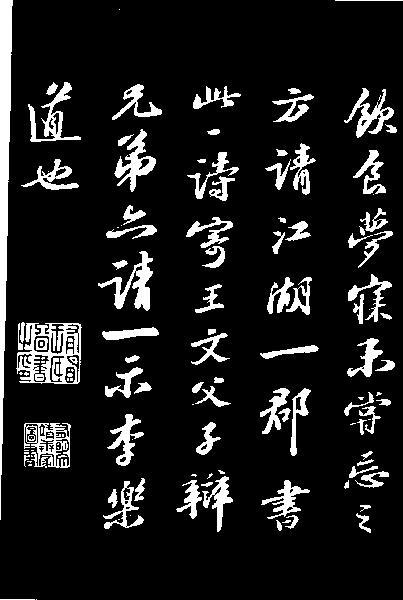 飲食夢寐未嘗忘之
方請江湖一郡書
此一詩寄王文父子辯
兄弟亦請一示李樂
道也
有明王氏圖書之印